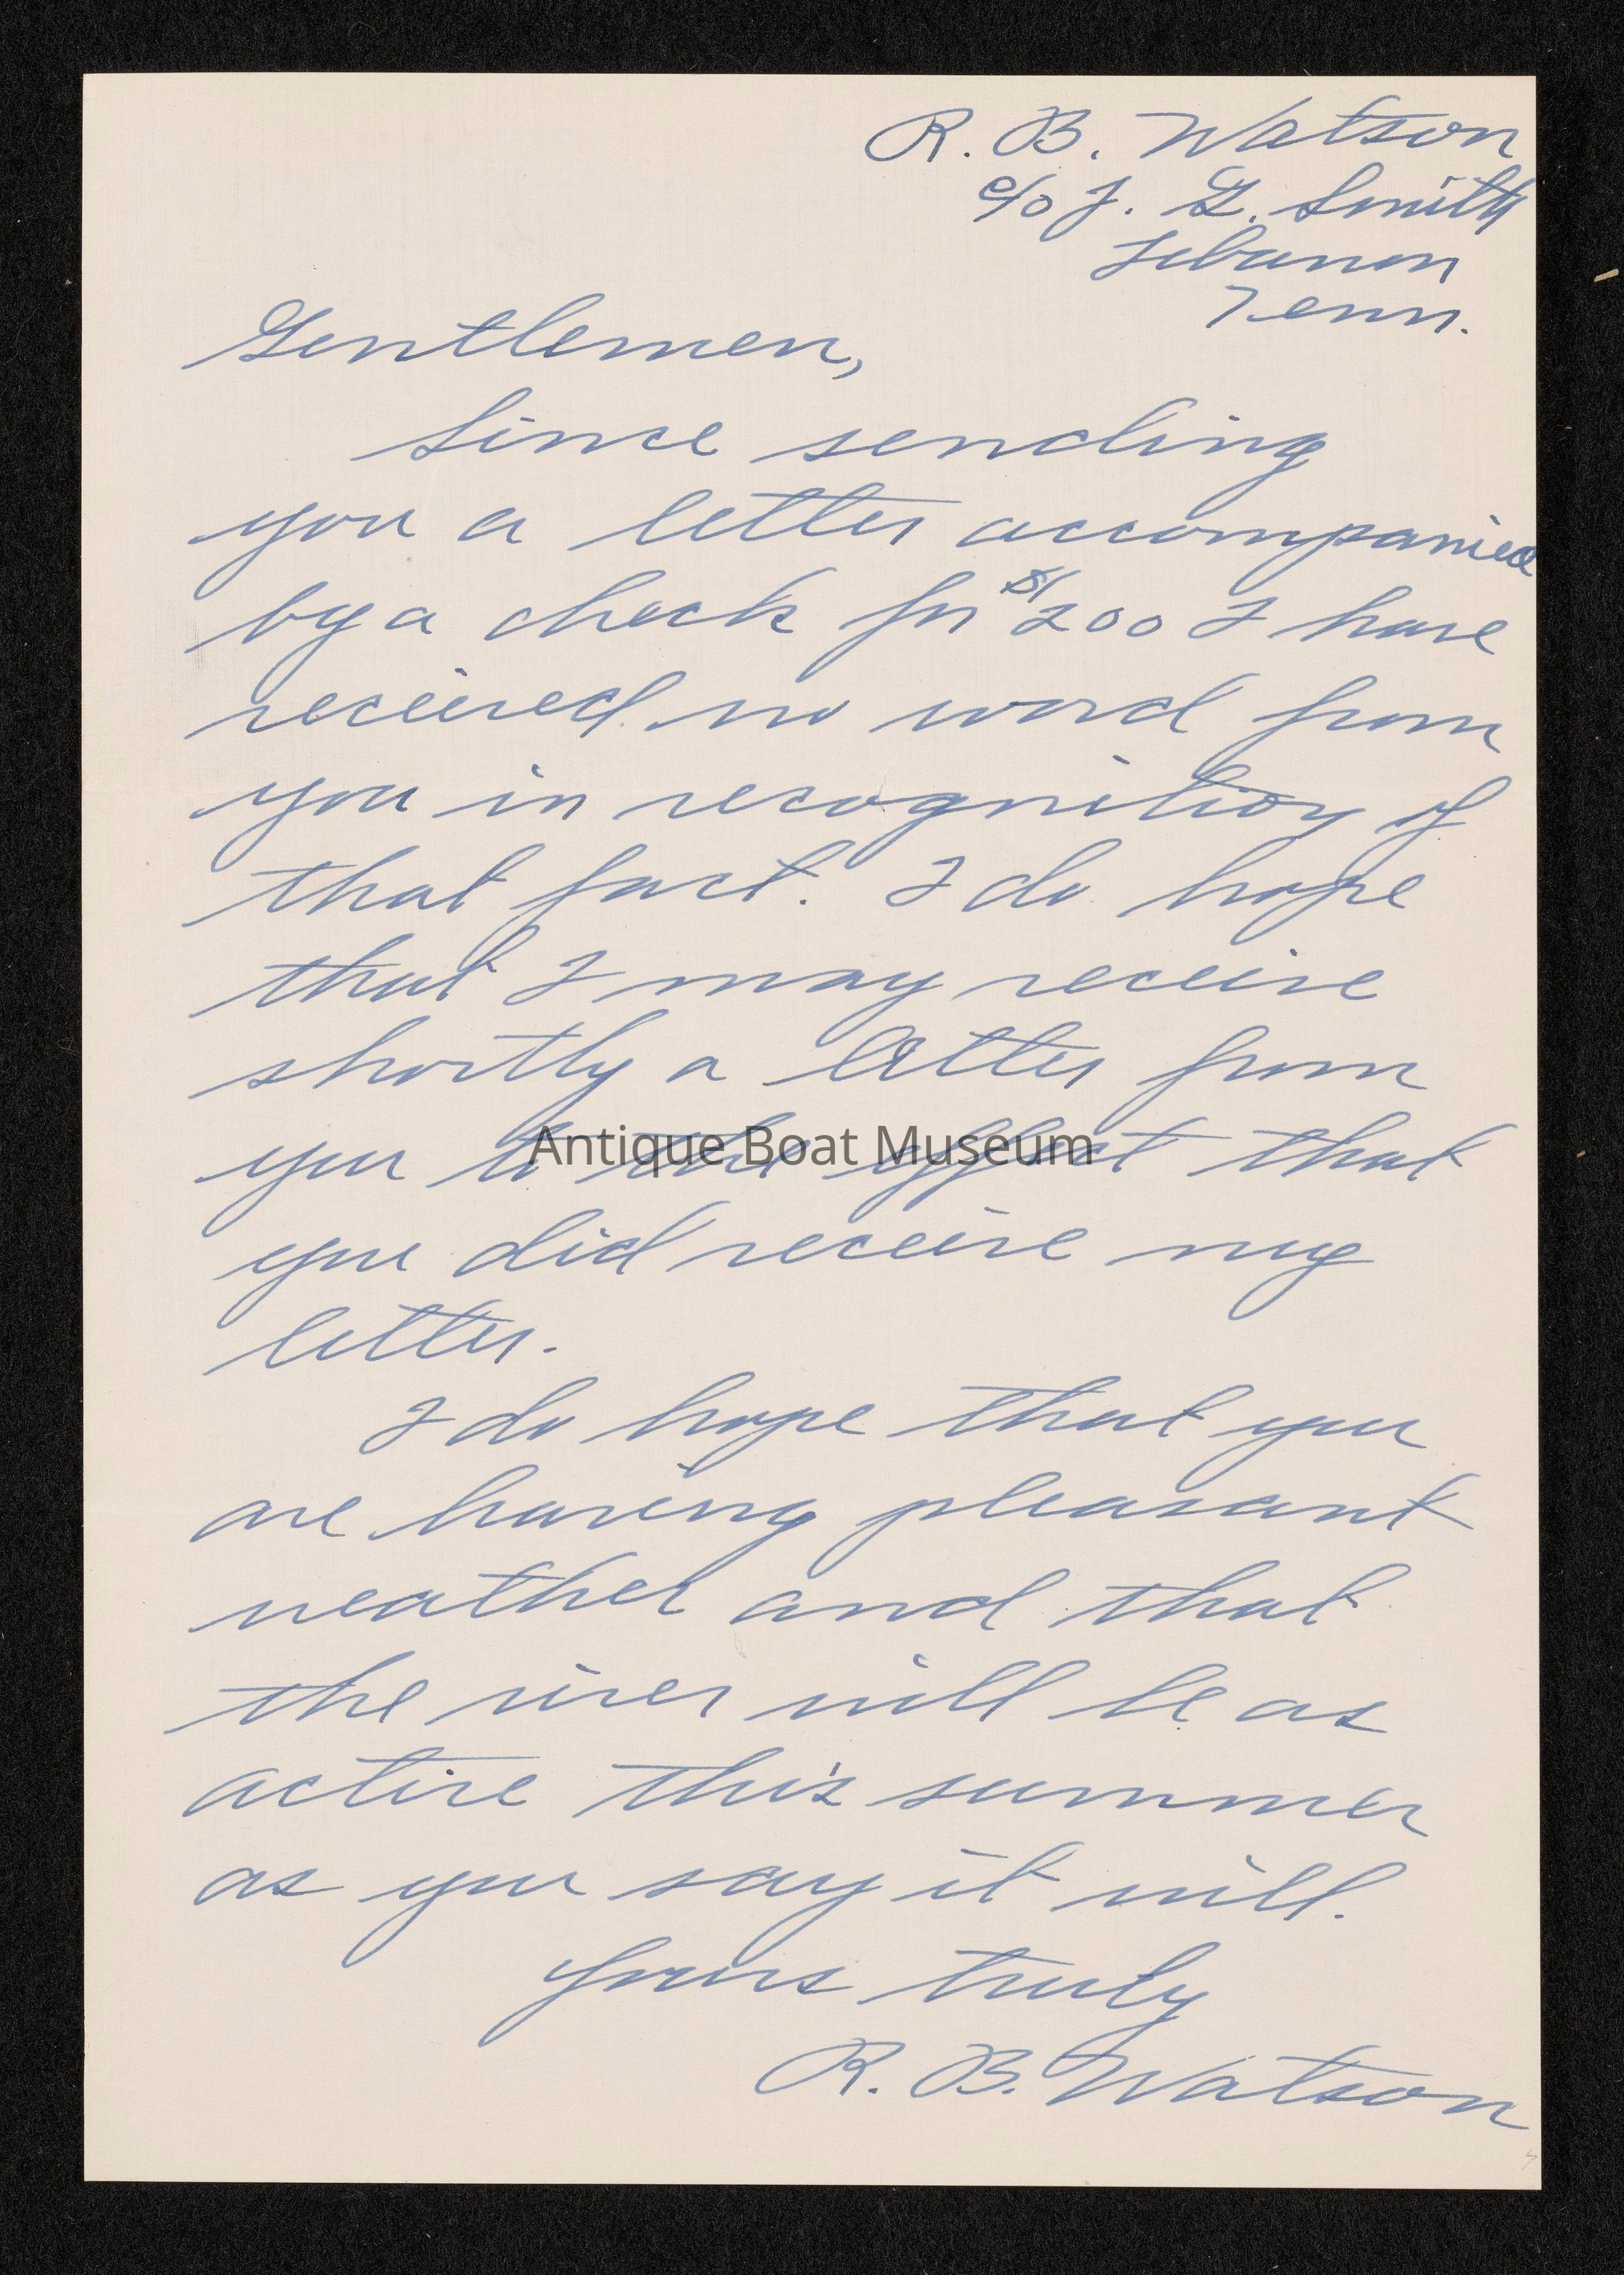 R. B. Watson
c/o J. G. Smith
Lebanon
Tenn.
Gentlemen,
Since sending
you a letter accompanied
by a check for $200 I have
received no word from
you in recognition of
that fact. I do hope
that I may receive
shortly a letter from
you to the effect that
Antique Boat Museum
you did receive my
letter.
I do hope that you
are having pleasant
weather and that
the river will be as
active this summer
as you say it will.
Yours truly
R. B. Watson